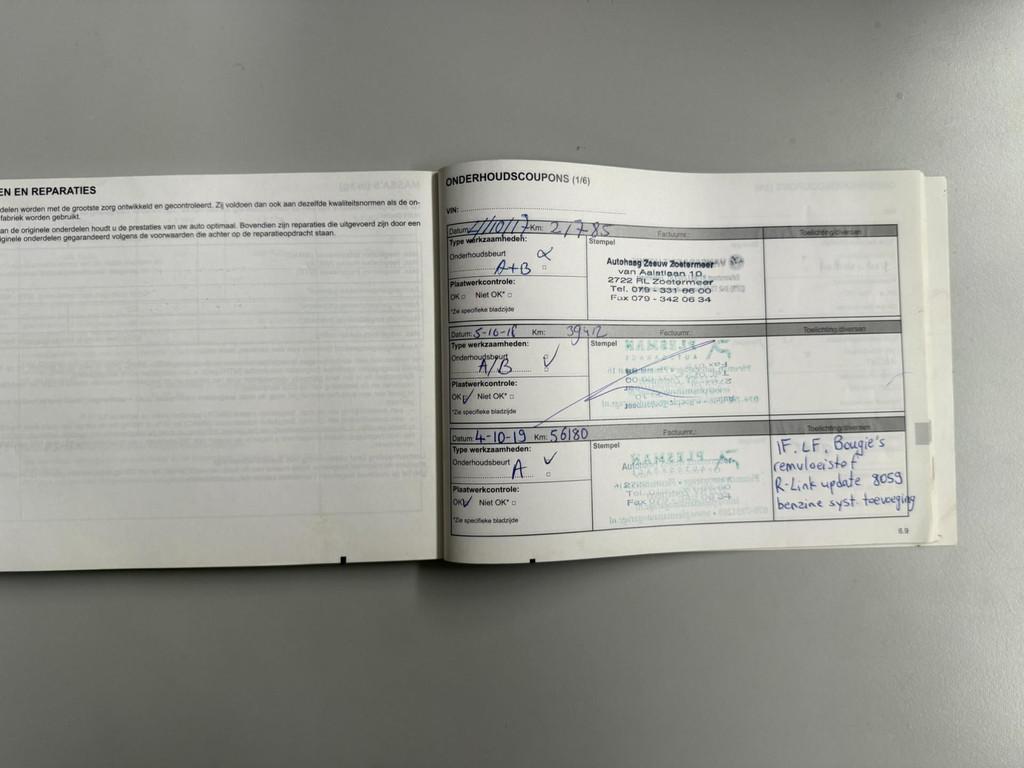 EN EN REPARATIES
delen worden met de grootste zorg ontwikkeld en gecontroleerd. Zij voldoen dan ook aan dezelfde kwaliteitsnormen als de on-
fabriek worden gebruikt.
an de originele onderdelen houdt u de prestaties van uw auto optimaal. Bovendien zijn reparaties die uitgevoerd zijn door een
iginele onderdelen gegarandeerd volgens de voorwaarden die achter op de reparatieopdracht staan.
ONDERHOUDSCOUPONS (1/6)
VIN:
Datum: 4/10/17 Km: 21785 Factuurnr.: Toelichting/diversen
Type werkzaamheden:
Onderhoudsbeurt
A+B
Plaatwerkcontrole:
OK □ Niet OK* □
*Zie specifieke bladzijde
Stempel
Autohaag Zeeuw Zoetermeer
van Aalstlaan 10
2722 RL Zoetermeer
Tel. 079 - 331 66 00
Fax 079 - 342 06 34
Datum: 5-10-18 Km: 39412 Factuurnr.: Toelichting/diversen
Type werkzaamheden:
Onderhoudsbeurt
A/B
Plaatwerkcontrole:
OK Niet OK* □
*Zie specifieke bladzijde
Stempel
Datum: 4-10-19 Km: 56180 Factuurnr.: Toelichting/diversen
Type werkzaamheden:
Onderhoudsbeurt
A
Plaatwerkcontrole:
OK Niet OK* □
*Zie specifieke bladzijde
Stempel
IF. LF. Bougie's
remvloeistof
R-Link update 8059
benzine syst. toevoeging
6.9